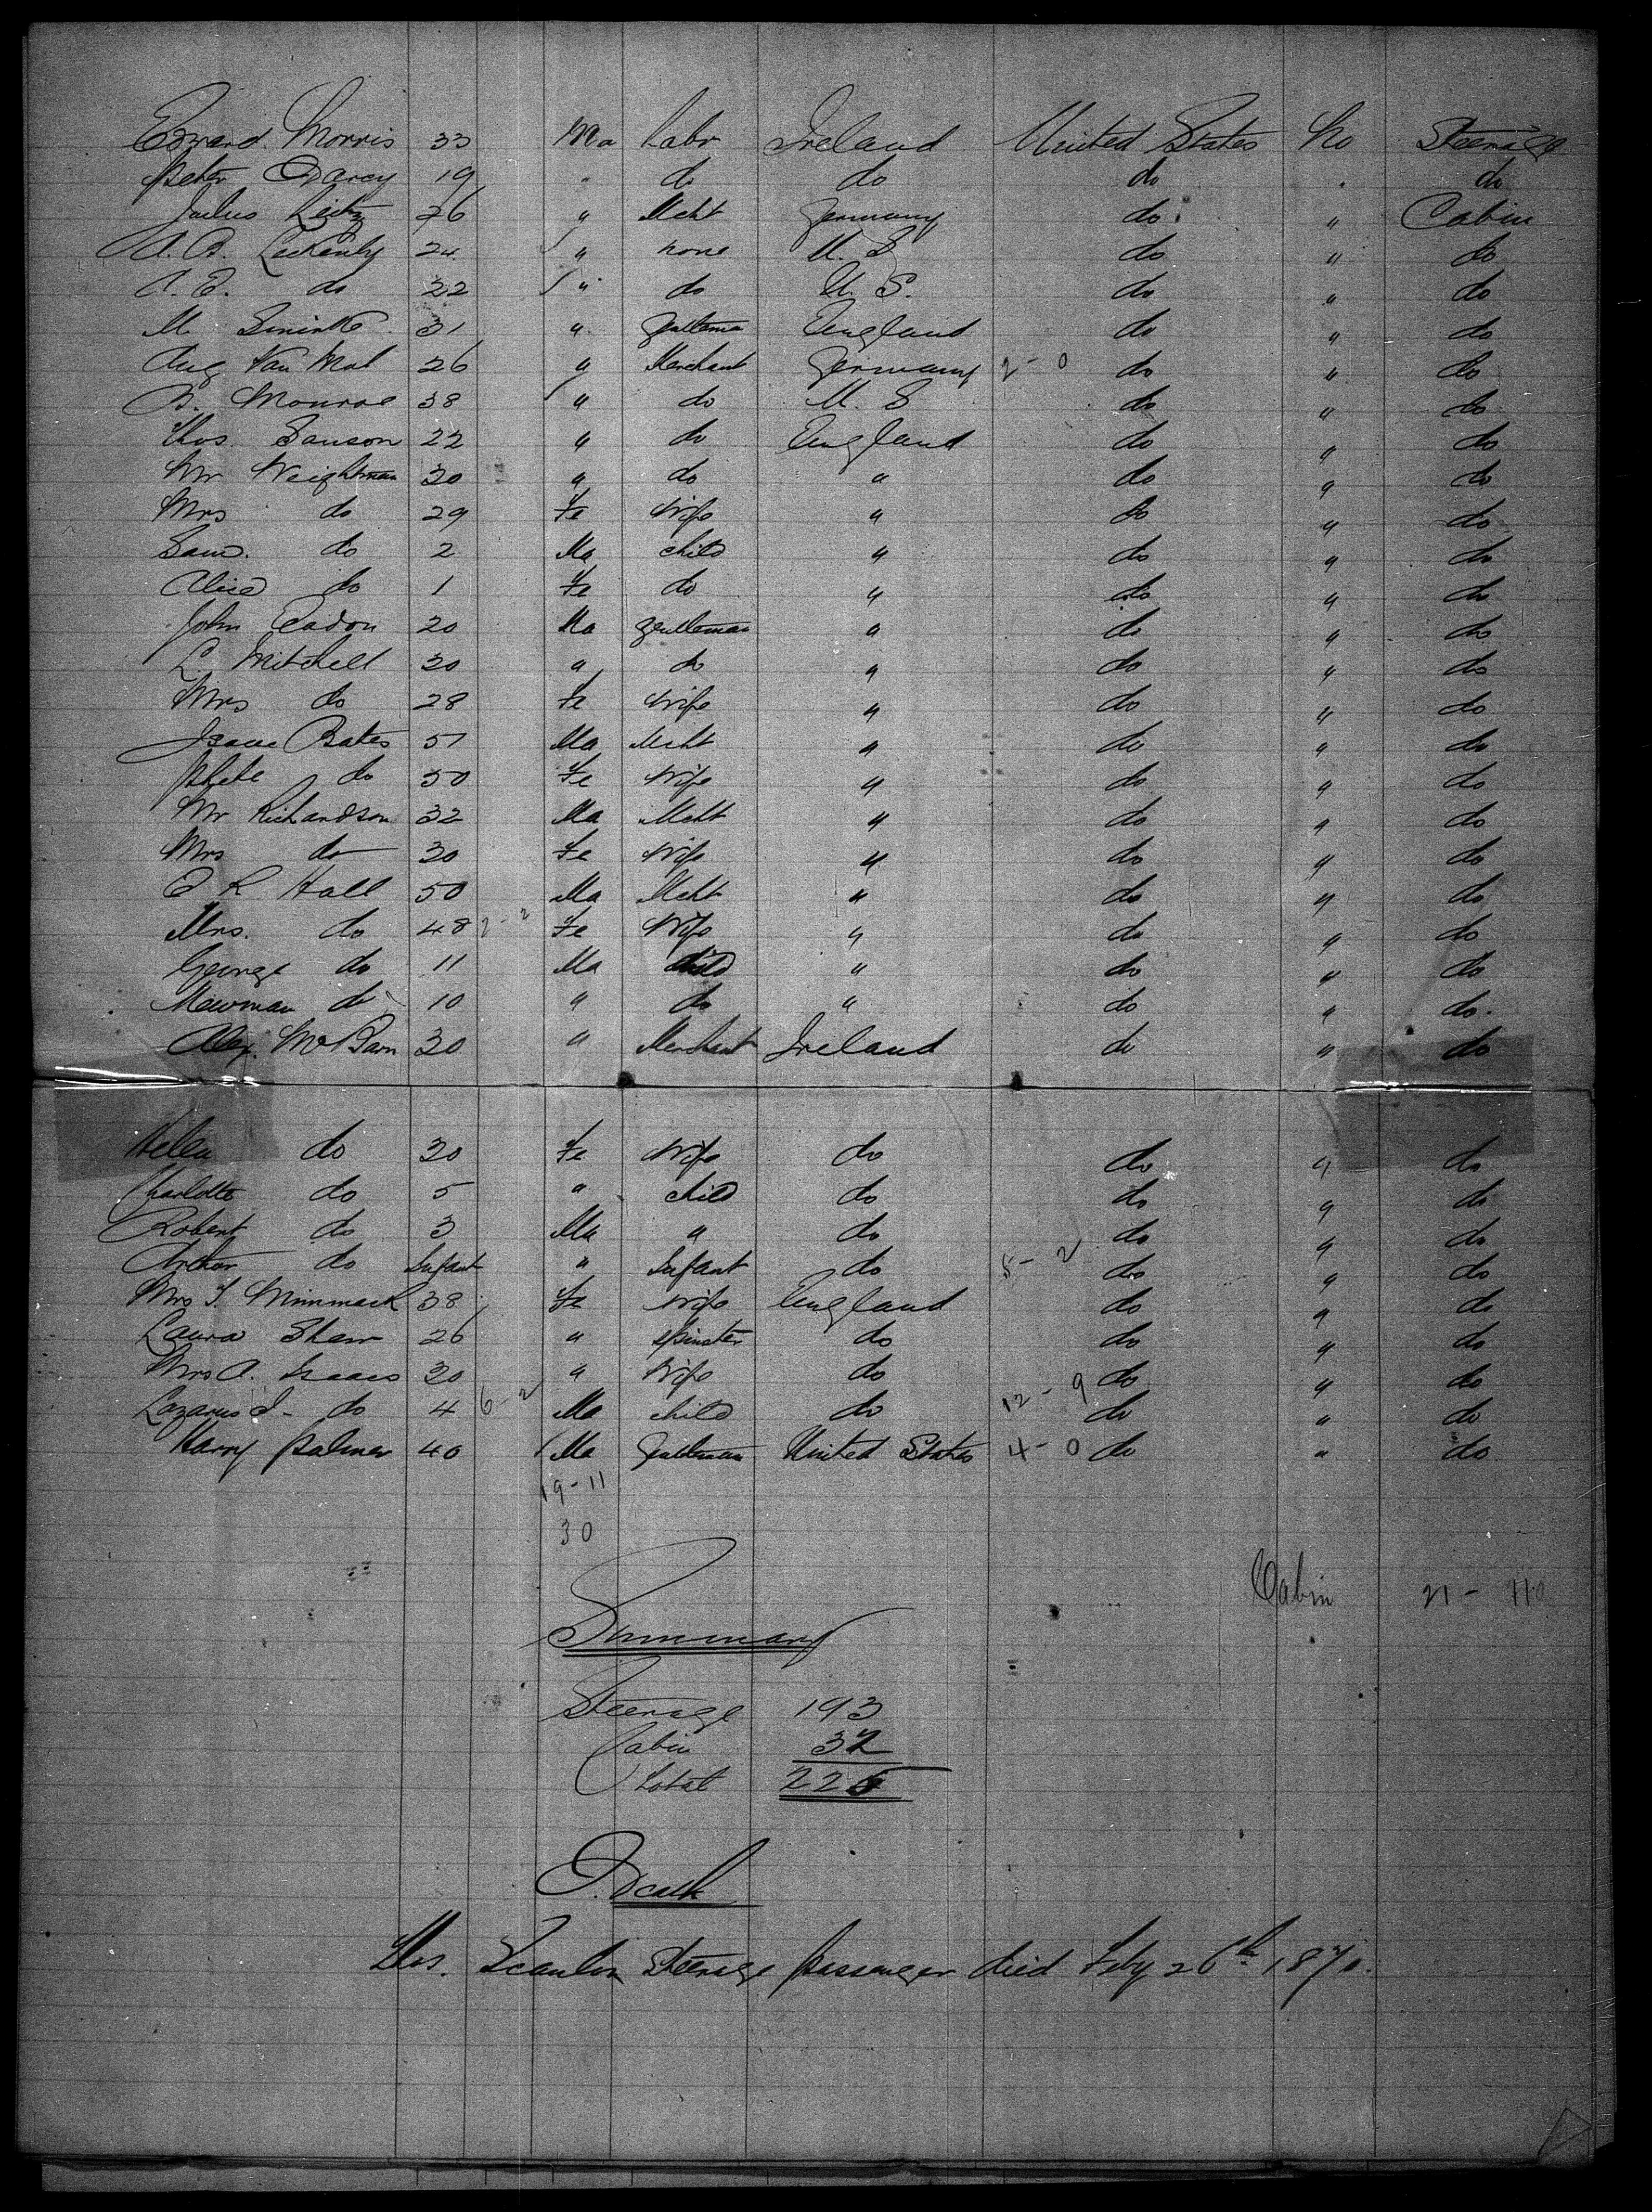 Edward Morris 33 Ma Labr Ireland United States No Steerage
Peter Darcy 19 " do do do " do
Julius Leitz 26 " Mcht Germany do " Cabin
A. B. Leckenby 24 " none U. S do " do
A. E. do 22 " do U. S. do " do
M 31 " Gentleman England do " do
Aug Van Mol 26 " Merchant Germany 2-0 do " do
B. Monroe 38 " do U. S do " do
Thos. Sanson 22 " do England do " do
Mr Weightman 30 " do " do " do
Mrs do 29 Fe Wife " do " do
Saml. do 2 Ma child " do " do
Alice do 1 Fe do " do " do
John Eadon 20 Ma gentleman " do " do
L. Mitchell 30 " do " do " do
Mrs do 28 Fe Wife " do " do
Isaac Bates 51 Ma Mcht " do " do
Phebe do 50 Fe Wife " do " do
Mr Richardson 32 Ma Mcht " do " do
Mrs do 30 Fe Wife " do " do
E R Hall 50 Ma Mcht " do " do
Mrs. do 48 2-2 Fe Wife " do " do
George do 11 Ma child " do " do
Newman do 10 " do " do " do.
Alex. McBarn 30 " Merchant Ireland do " do
Helen do 30 Fe Wife do do " do
Charlotte do 5 " child do do " do
Robert do 3 Ma " do do " do
Arthur do Infant " Infant do 5-2 do " do
Mrs T. Mimmack 38 Fe Wife England do " do
Laura Shaw 26 " spinster do do " do
Mrs A. Isaacs 30 " Wife do do " do
Lazarus I- do 4 6-2 Ma child do 12-9 do " do
Harry Palmer 40 Ma Gentleman United States 4-0 do " do
19-11
30
Cabin 21-11
Summary
Steerage 193
Cabin 32
Total 225
Death
Thos. Scanlon Steerage passenger died Feby 26th 1870.